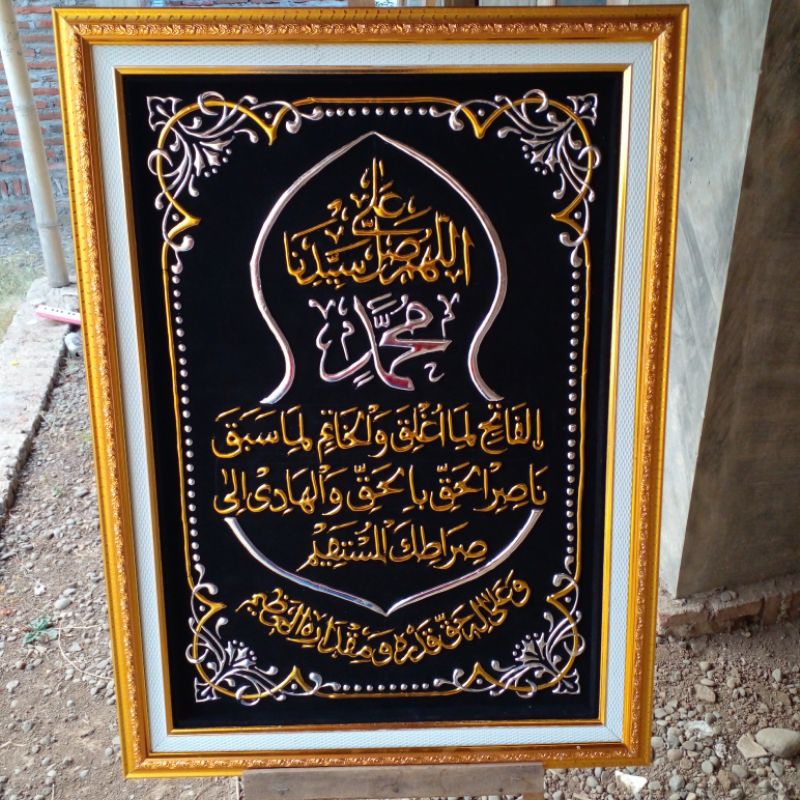 اللّٰهُمَّ صَلِّ عَلَى سَيِّدِنَا
مُحَمَّدٍ
الفَاتِحِ لِمَا اُغْلِقَ وَالْخَاتِمِ لِمَا سَبَقَ
نَاصِرِ الْحَقِّ بِالْحَقِّ وَالْهَادِىْ اِلٰى
صِرَاطِكَ الْمُسْتَقِيْمِ
وَعَلٰى اٰلِهِ حَقَّ قَدْرِهِ وَمِقْدَارِهِ الْعَظِيْمِ